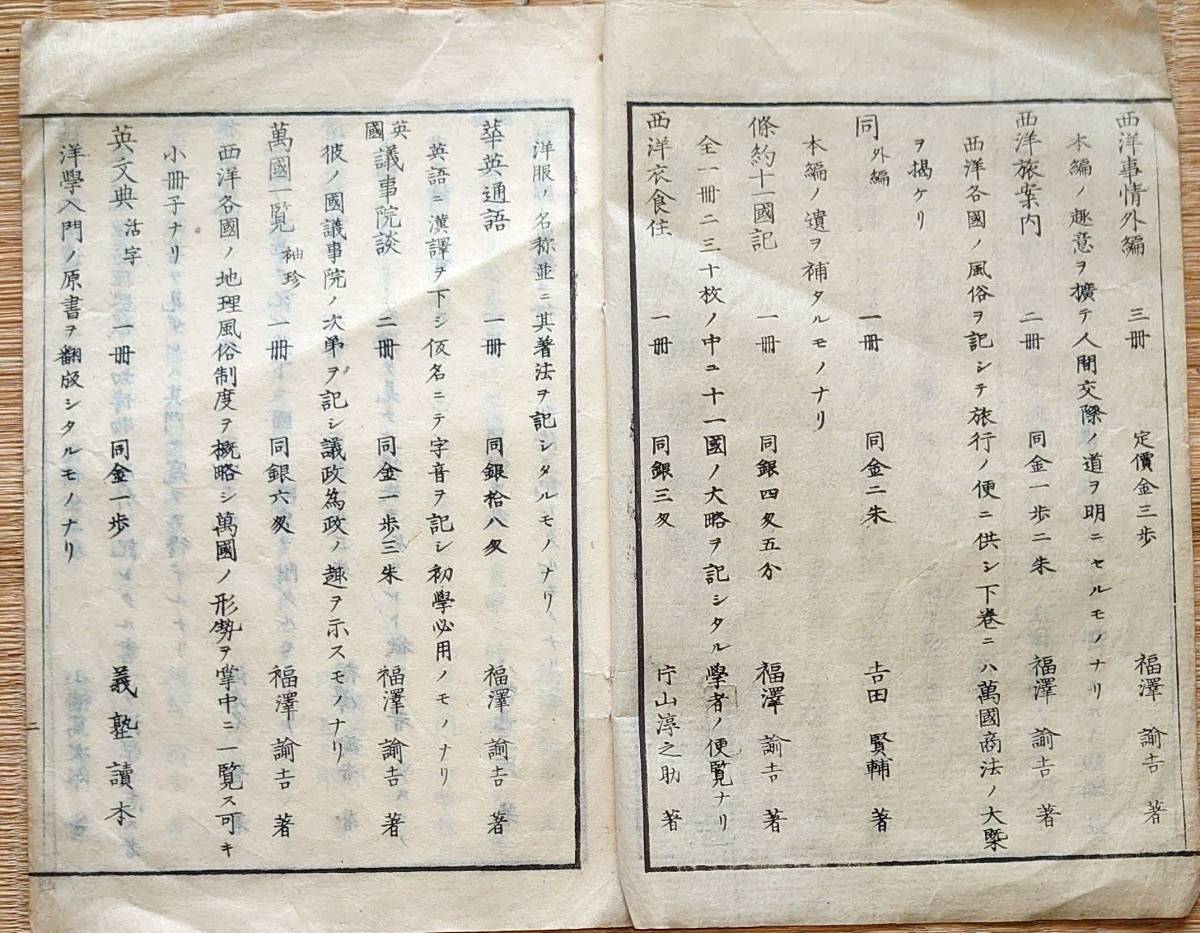 西洋事情外編 三冊 定價金三歩 福澤諭吉著
本編ノ趣意ヲ擴テ人間交際ノ道ヲ明ニセルモノナリ
西洋旅案内 二冊 同金一歩二朱 福澤諭吉著
西洋各國ノ風俗ヲ記シテ旅行ノ便ニ供シ下巻ニハ萬國商法ノ大槩
ヲ揭ケリ
同外編 一冊 同金二朱 吉田賢輔著
本編ノ遺ヲ補タルモノナリ
條約十一國記 一冊 同銀四匁五分 福澤諭吉著
全一冊二三十枚ノ中ニ十一國ノ大略ヲ記シタル學者ノ便覧ナリ
西洋衣食住 一冊 同銀三匁 片山淳之助著
洋服ノ名称並ニ其著法ヲ記シタルモノナリ
華英通語 一冊 同銀拾八匁 福澤諭吉著
英語ニ漢譯ヲ下シ仮名ニテ字音ヲ記シ初學必用ノモノナリ
英國議事院談 二冊 同金一歩三朱 福澤諭吉著
彼ノ國議事院ノ次第ヲ記シ議政為政ノ趣ヲ示スモノナリ
萬國一覧 袖珍 一冊 同銀六匁 福澤諭吉著
西洋各國ノ地理風俗制度ヲ概略シ萬國ノ形勢ヲ掌中ニ一覧ス可キ
小冊子ナリ
英文典 活字 一冊 同金一歩 義塾讀本
洋學入門ノ原書ヲ翻版シタルモノナリ
二